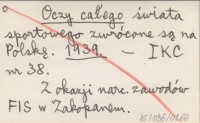 Oczy całego świata
sportowego zwrócone są na
Polskę. 1939. — IKC
nr 38.
Z okazji narc. zawodów
FIS w Zakopanem.